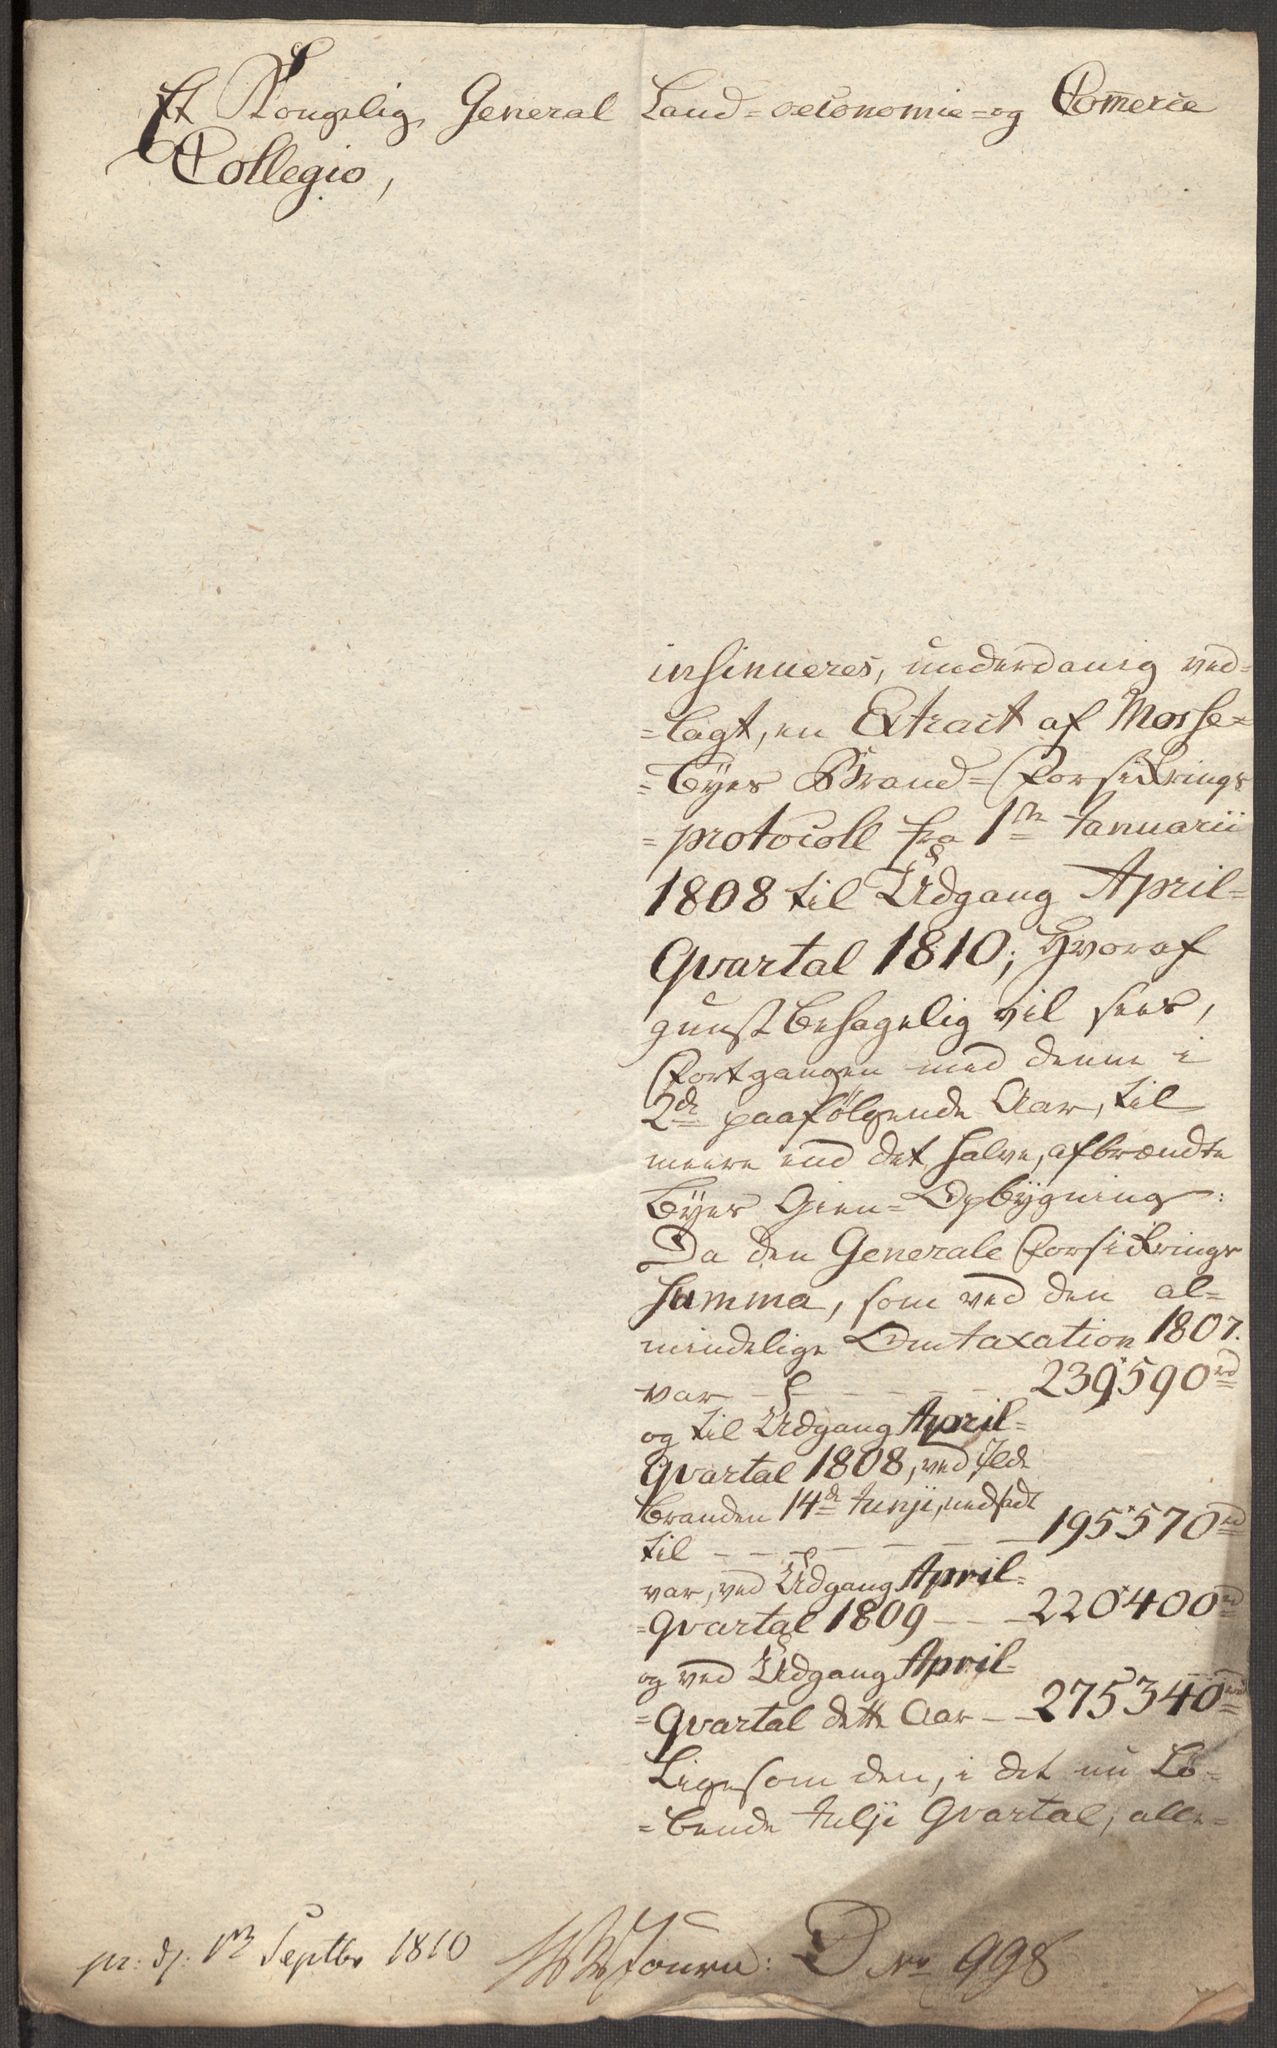 Et Kongelig General Land=oeconomie=og Commerce
Collegio,
insinueres, underdanig ved=
=lagt, en Extract af Mosse=
=Byes Brand=Forsikrings
=protocoll fra 1ste Januarii
1808 til Udgang April=
Qvartal 1810; Hvoraf
gunstbehagelig vil sees,
Fortgangen med denne i
2de paafølgende Aar, til
meere end det halve, afbrændte
Byes Gien=Opbÿgning:
Da den Generale Forsikrings
Summa, som ved den al=
mindelige Omtaxation 1807.
var - - - - - 239590rd
og til Udgang April=
Qvartal 1808, ved Ilde
branden 14de Junji, nedsadt
til - - - - - - 195570rd
var, ved Udgang April=
=Qvartal 1809 - - 220400rd
og ved Udgang April=
=Qvartal dette Aar - - 275340rd
Ligesom den, i det nu Lø=
=bende Julji Qvartal, alle=
pr: d: 1ste Septbr 1810 Journ: D No 998